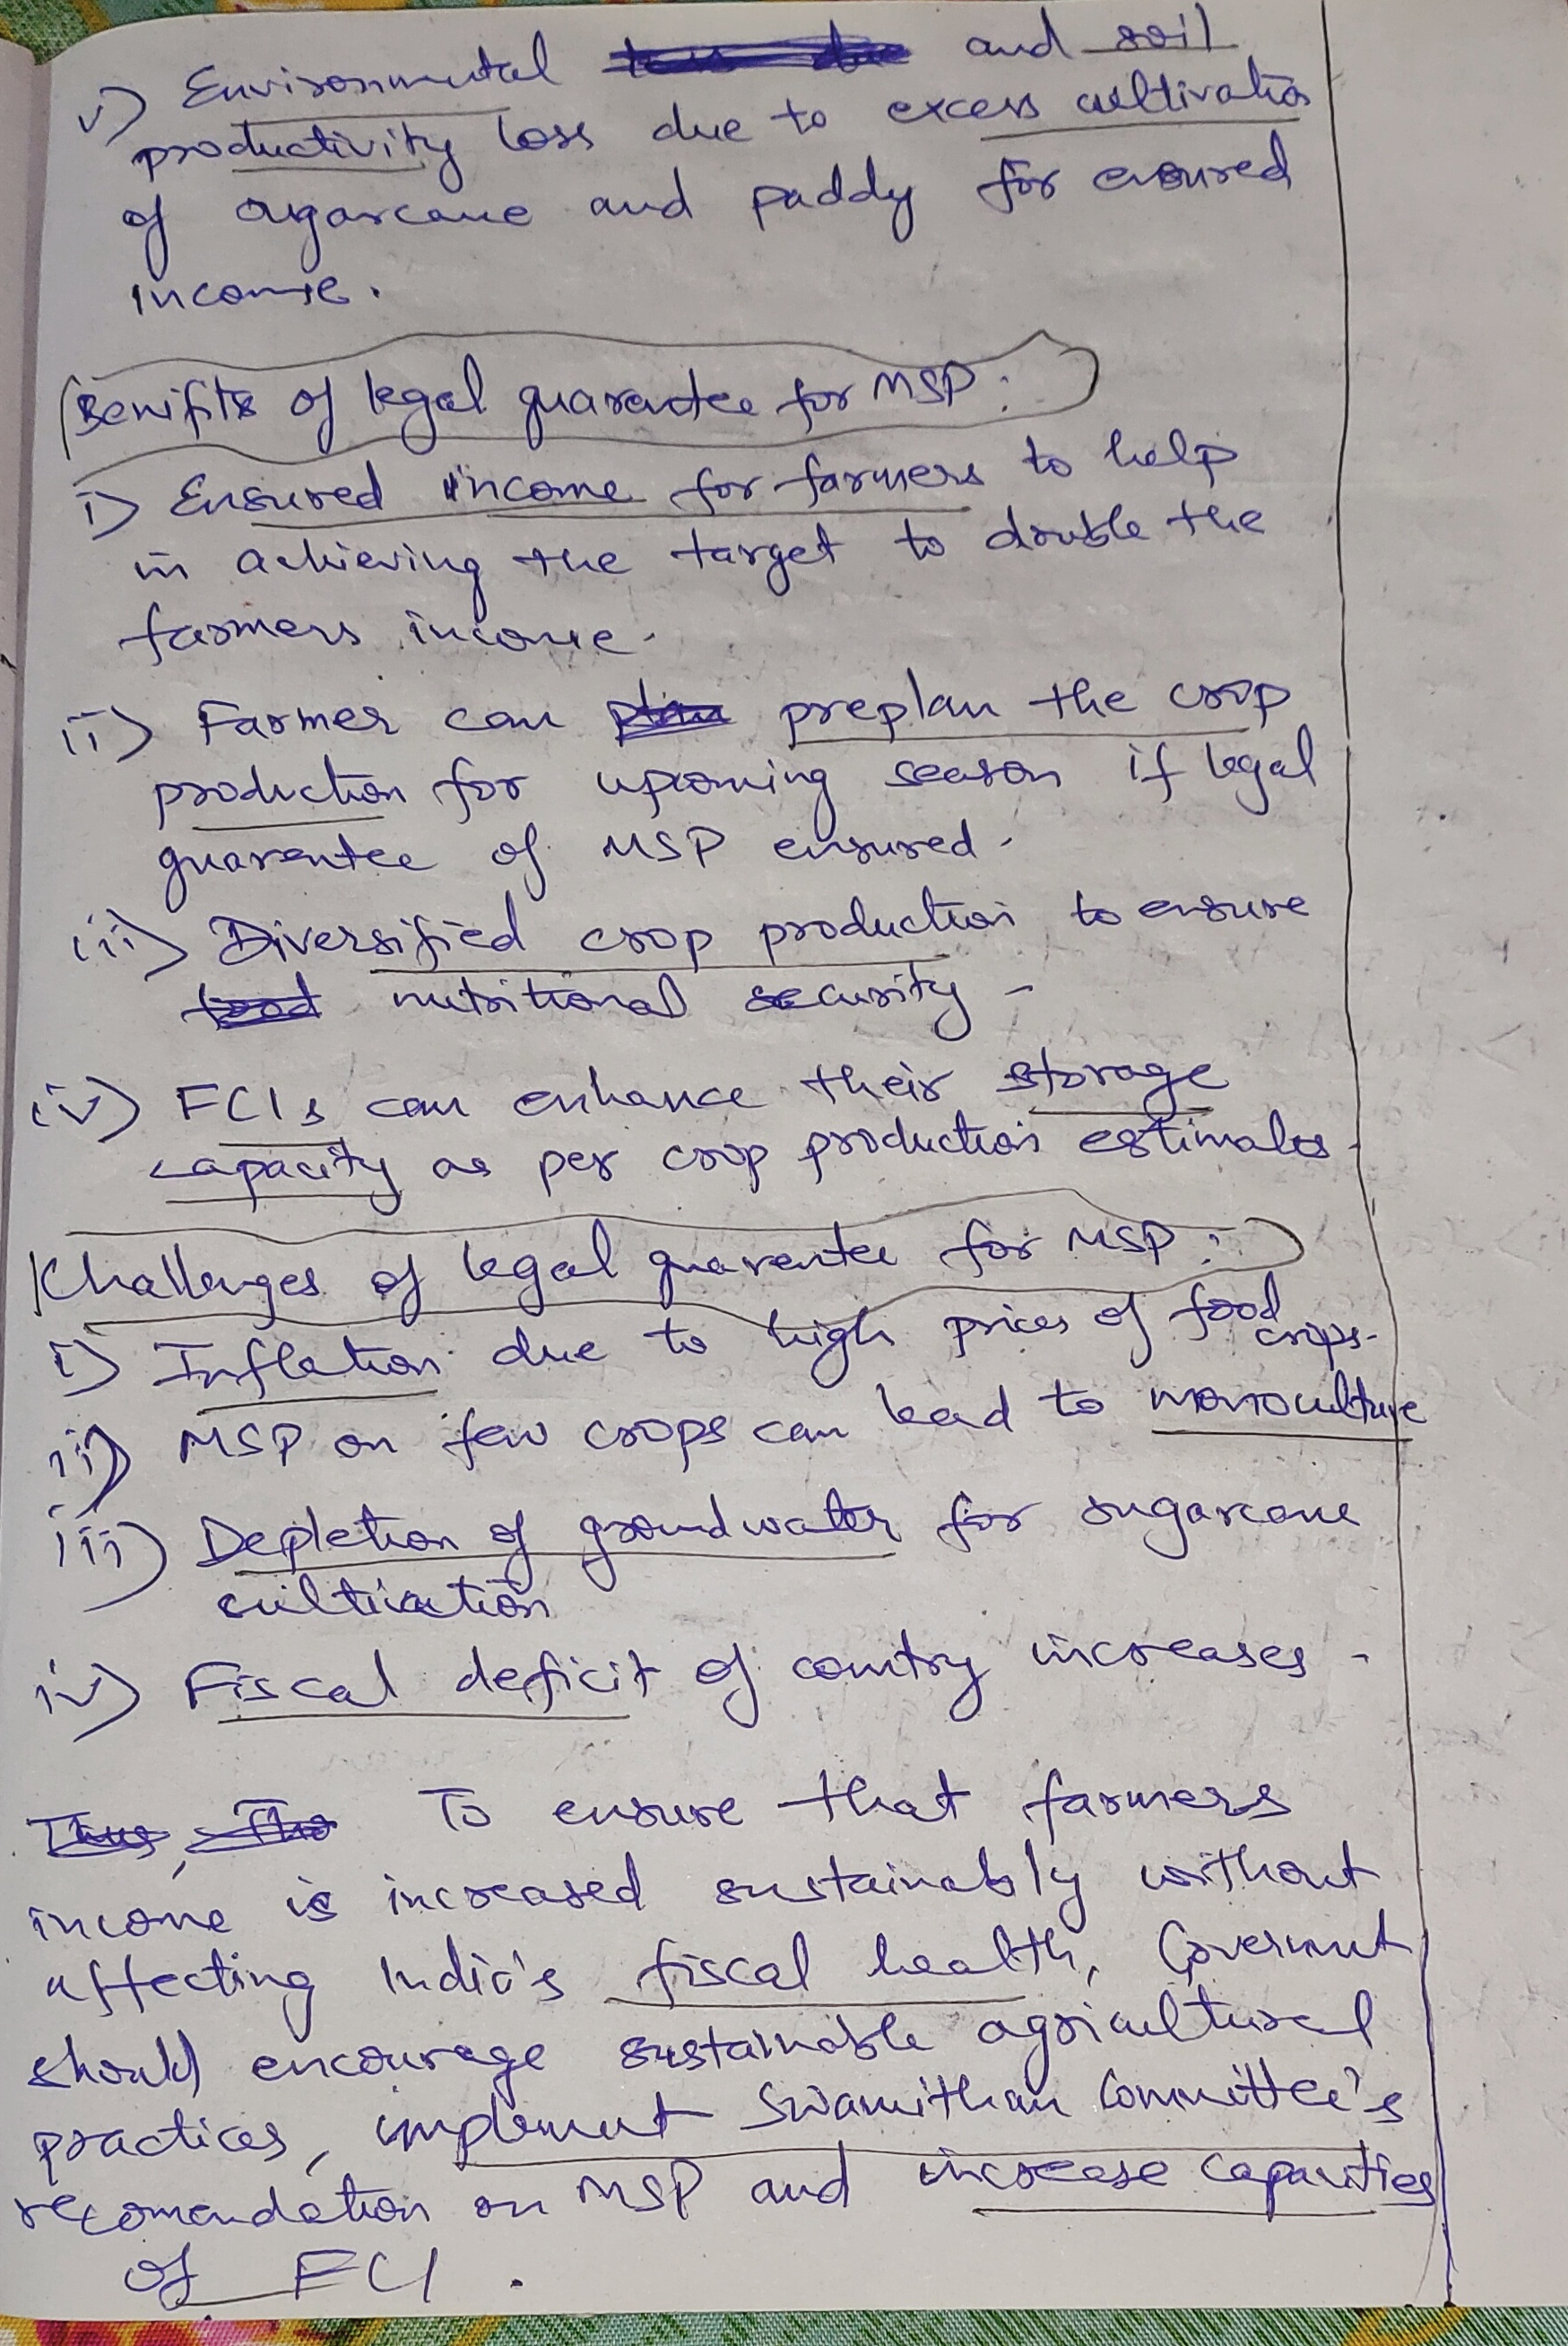 v) Environmental and soil
productivity loss due to excess cultivation
of sugarcane and paddy for ensured
income.
Benifits of legal guarantee for MSP:
i) Ensured income for farmers to help
in achieving the target to double the
farmers income.
ii) Farmer can preplan the crop
production for upcoming season if legal
guarentee of MSP ensured.
iii) Diversified crop production to ensure
nutritional security.
iv) FCIs can enhance their storage
capacity as per crop production estimates.
Challenges of legal guarentee for MSP:
i) Inflation due to high prices of food crops.
ii) MSP on few crops can lead to monoculture
iii) Depletion of groundwater for sugarcane
cultivation
iv) Fiscal deficit of country increases.
To ensure that farmers
income is increased sustainably without
affecting India's fiscal health, Government
should encourage sustainable agricultural
practices, implement Swamithan Committee's
recomendation on MSP and increase capacities
of FCI.